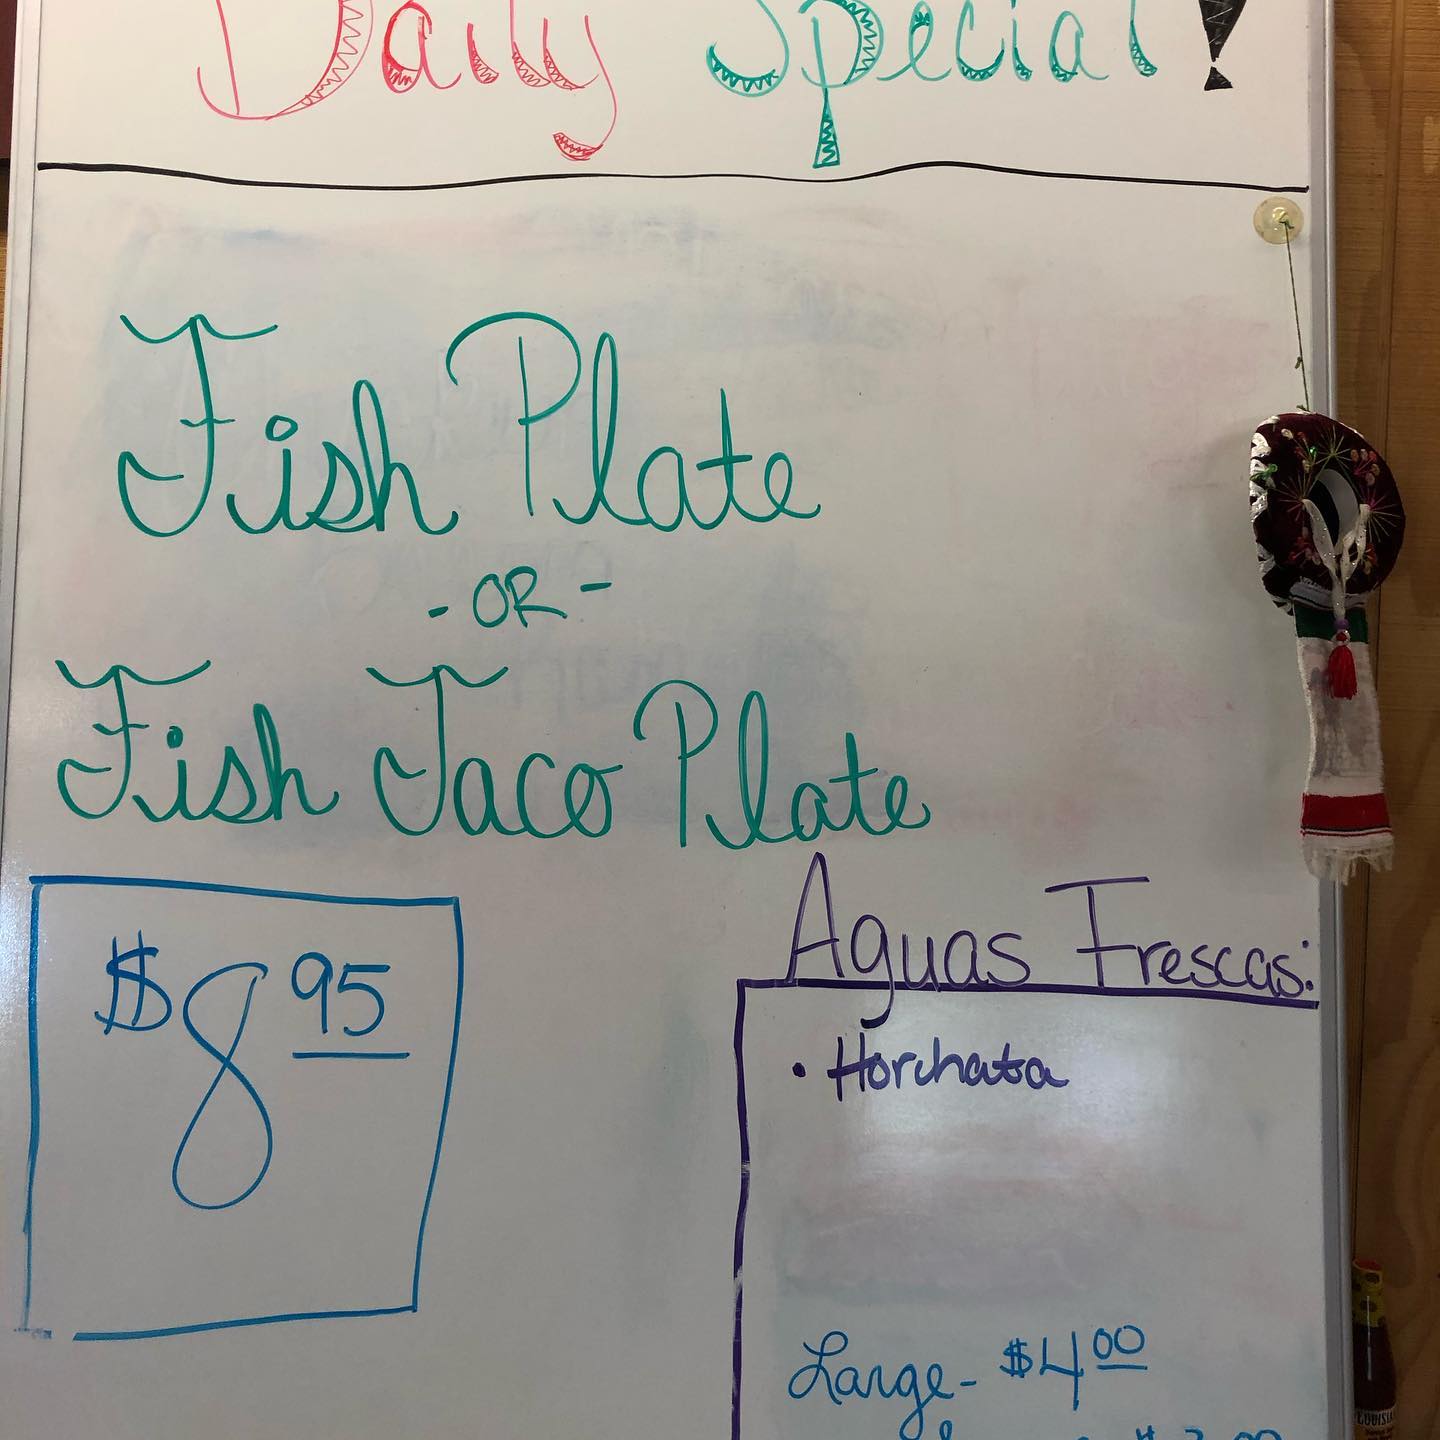 Daily Special!
Fish Plate
- OR -
Fish Taco Plate
$8.95
Aguas Frescas:
• Horchata
Large - $4.00